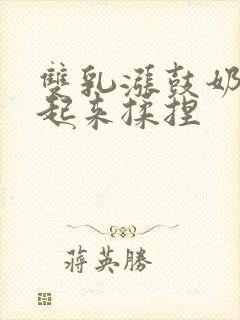 雙乳漲鼓奶
起来揉捏
蒋英勝